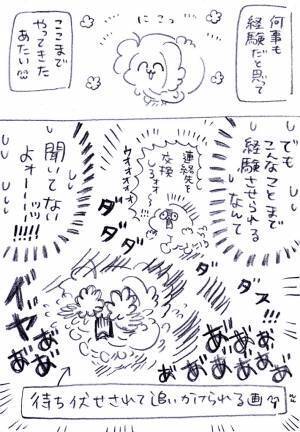 何事も
経験だと思って
にこっ
ここまで
やってきた
あたい
でも
こんなことまで
経験させられる
なんて
連絡先を
交換
しろォォ!!
ウオオオオ
聞いてない
よォーーッッ
!!!!!
ダダダ
ダダダ
ダッ!!!
イヤ
あ゛あ゛
あ゛あ゛
あ゛あ゛あ゛あ゛あ゛
待ち伏せされて追いかけられる画